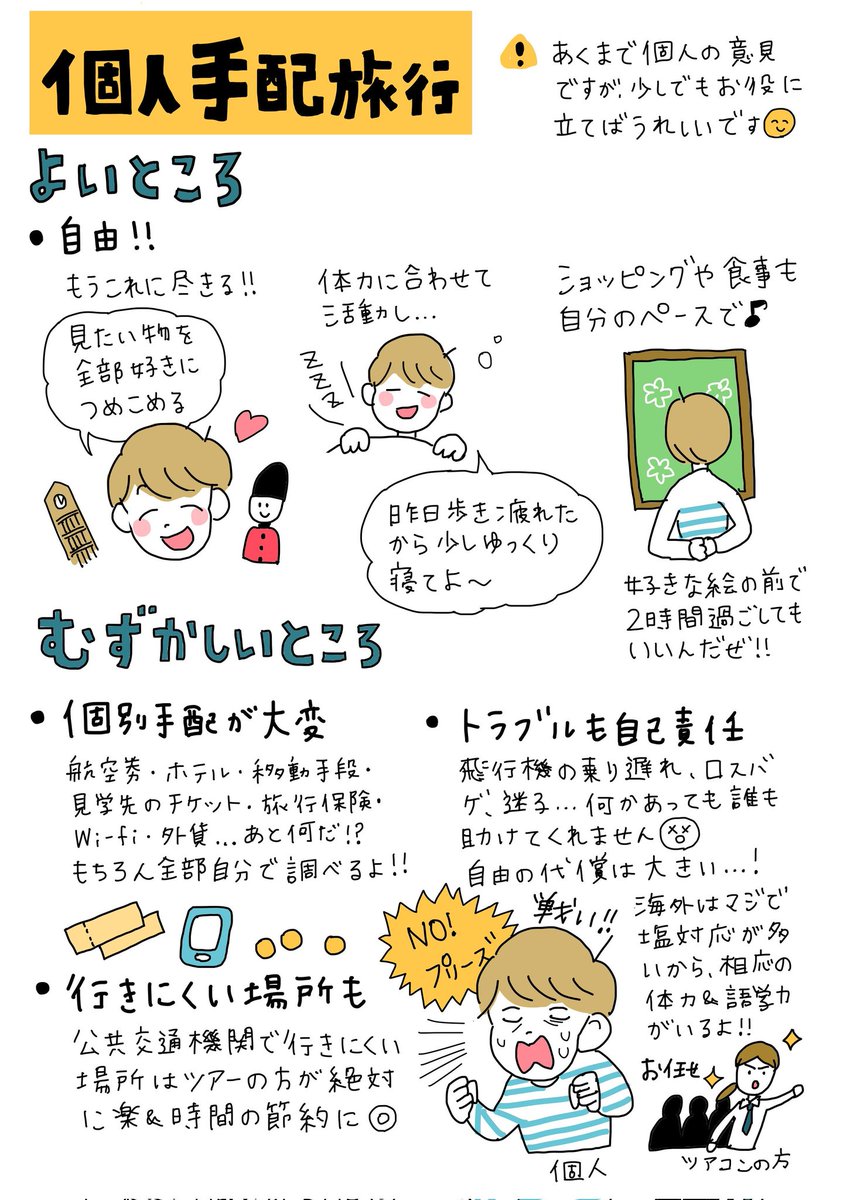 個人手配旅行
あくまで個人の意見
ですが、少しでもお役に
立てばうれしいです
よいところ
• 自由!!
もうこれに尽きる!!
見たい物を
全部好きに
つめこめる
体力に合わせて
活動し…
ZZZZ
昨日歩き疲れた
から少しゆっくり
寝てよ〜
ショッピングや食事も
自分のペースで♪
好きな絵の前で
2時間過ごしても
いいんだぜ!!
むずかしいところ
• 個別手配が大変
航空券・ホテル・移動手段・
見学先のチケット・旅行保険・
Wi-fi・外貨…あと何だ!?
もちろん全部自分で調べるよ!!
• 行きにくい場所も
公共交通機関で行きにくい
場所はツアーの方が絶対
に楽&時間の節約に◎
• トラブルも自己責任
飛行機の乗り遅れ、ロスバ
ゲ、迷子…何かあっても誰も
助けてくれません
自由の代償は大きい…!
NO!
プリーズ
戦い!!
海外はマジで
塩対応が多
いから、相応の
体力&語学力
がいるよ!!
お任せ
個人
ツアコンの方